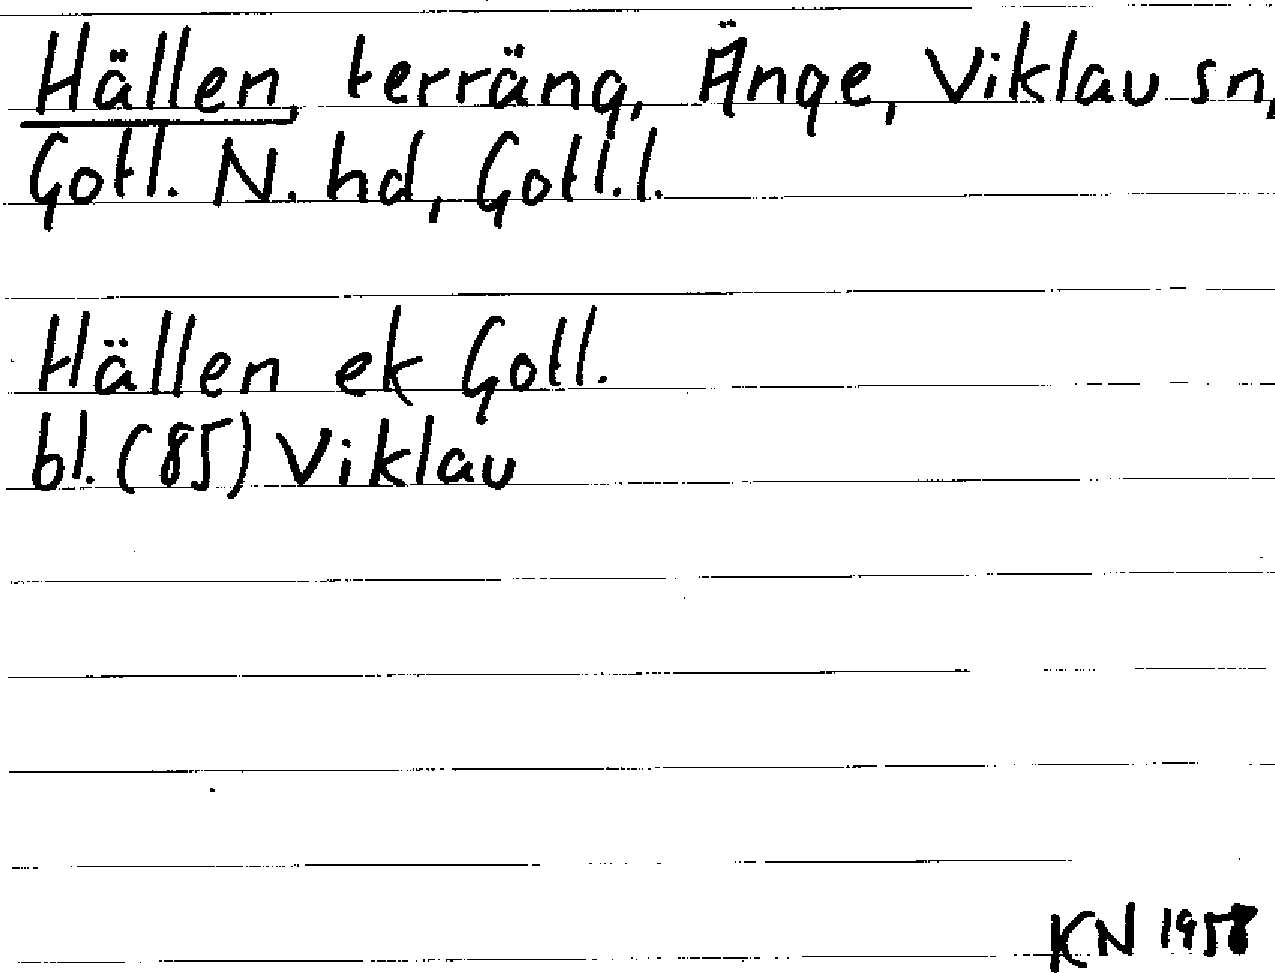 Hällen, terräng, Änge, Viklau sn,
Gotl. N. hd, Gotl. l.
Hällen ek Gotl.
bl. (85) Viklau
KN 1958